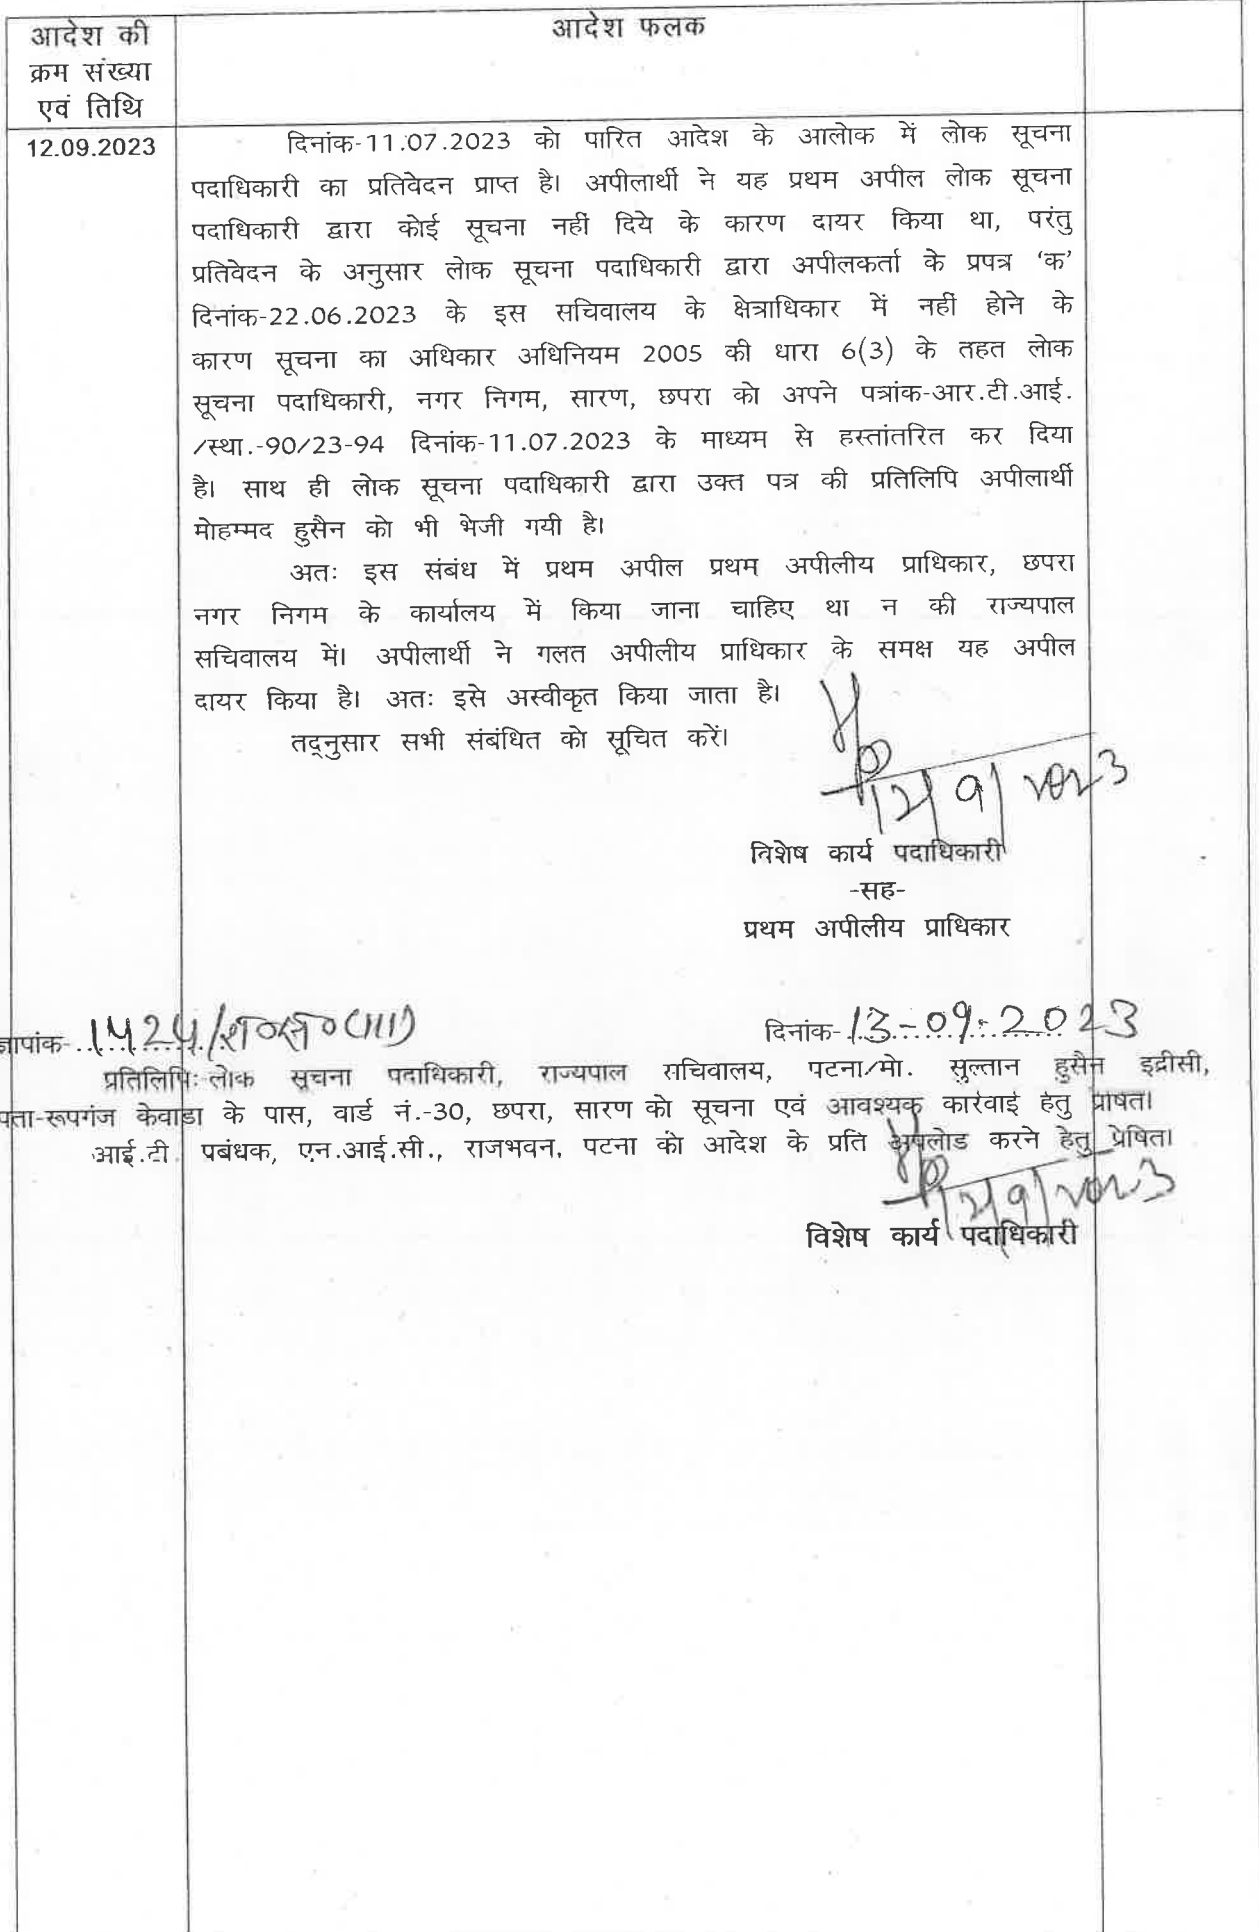 आदेश की
क्रम संख्या
एवं तिथि
आदेश फलक
12.09.2023
दिनांक-11.07.2023 को पारित आदेश के आलोक में लोक सूचना
पदाधिकारी का प्रतिवेदन प्राप्त है। अपीलार्थी ने यह प्रथम अपील लोक सूचना
पदाधिकारी द्वारा कोई सूचना नहीं दिये के कारण दायर किया था, परंतु
प्रतिवेदन के अनुसार लोक सूचना पदाधिकारी द्वारा अपीलकर्ता के प्रपत्र ‘क’
दिनांक-22.06.2023 के इस सचिवालय के क्षेत्राधिकार में नहीं होने के
कारण सूचना का अधिकार अधिनियम 2005 की धारा 6(3) के तहत लोक
सूचना पदाधिकारी, नगर निगम, सारण, छपरा को अपने पत्रांक-आर.टी.आई.
/स्था.-90/23-94 दिनांक-11.07.2023 के माध्यम से हस्तांतरित कर दिया
है। साथ ही लोक सूचना पदाधिकारी द्वारा उक्त पत्र की प्रतिलिपि अपीलार्थी
मोहम्मद हुसैन को भी भेजी गयी है।
अतः इस संबंध में प्रथम अपील प्रथम अपीलीय प्राधिकार, छपरा
नगर निगम के कार्यालय में किया जाना चाहिए था न की राज्यपाल
सचिवालय में। अपीलार्थी ने गलत अपीलीय प्राधिकार के समक्ष यह अपील
दायर किया है। अतः इसे अस्वीकृत किया जाता है।
तद्नुसार सभी संबंधित को सूचित करें।
विशेष कार्य पदाधिकारी
-सह-
प्रथम अपीलीय प्राधिकार
ज्ञापांक- 1424/रा०स०(III) दिनांक-13-09-2023
प्रतिलिपिः-लोक सूचना पदाधिकारी, राज्यपाल सचिवालय, पटना/मो. सुल्तान हुसैन इद्रीसी,
पता-रूपगंज केवाडा के पास, वार्ड नं.-30, छपरा, सारण को सूचना एवं आवश्यक कार्रवाई हेतु प्रेषित।
आई.टी. प्रबंधक, एन.आई.सी., राजभवन, पटना को आदेश के प्रति अपलोड करने हेतु प्रेषित।
विशेष कार्य पदाधिकारी